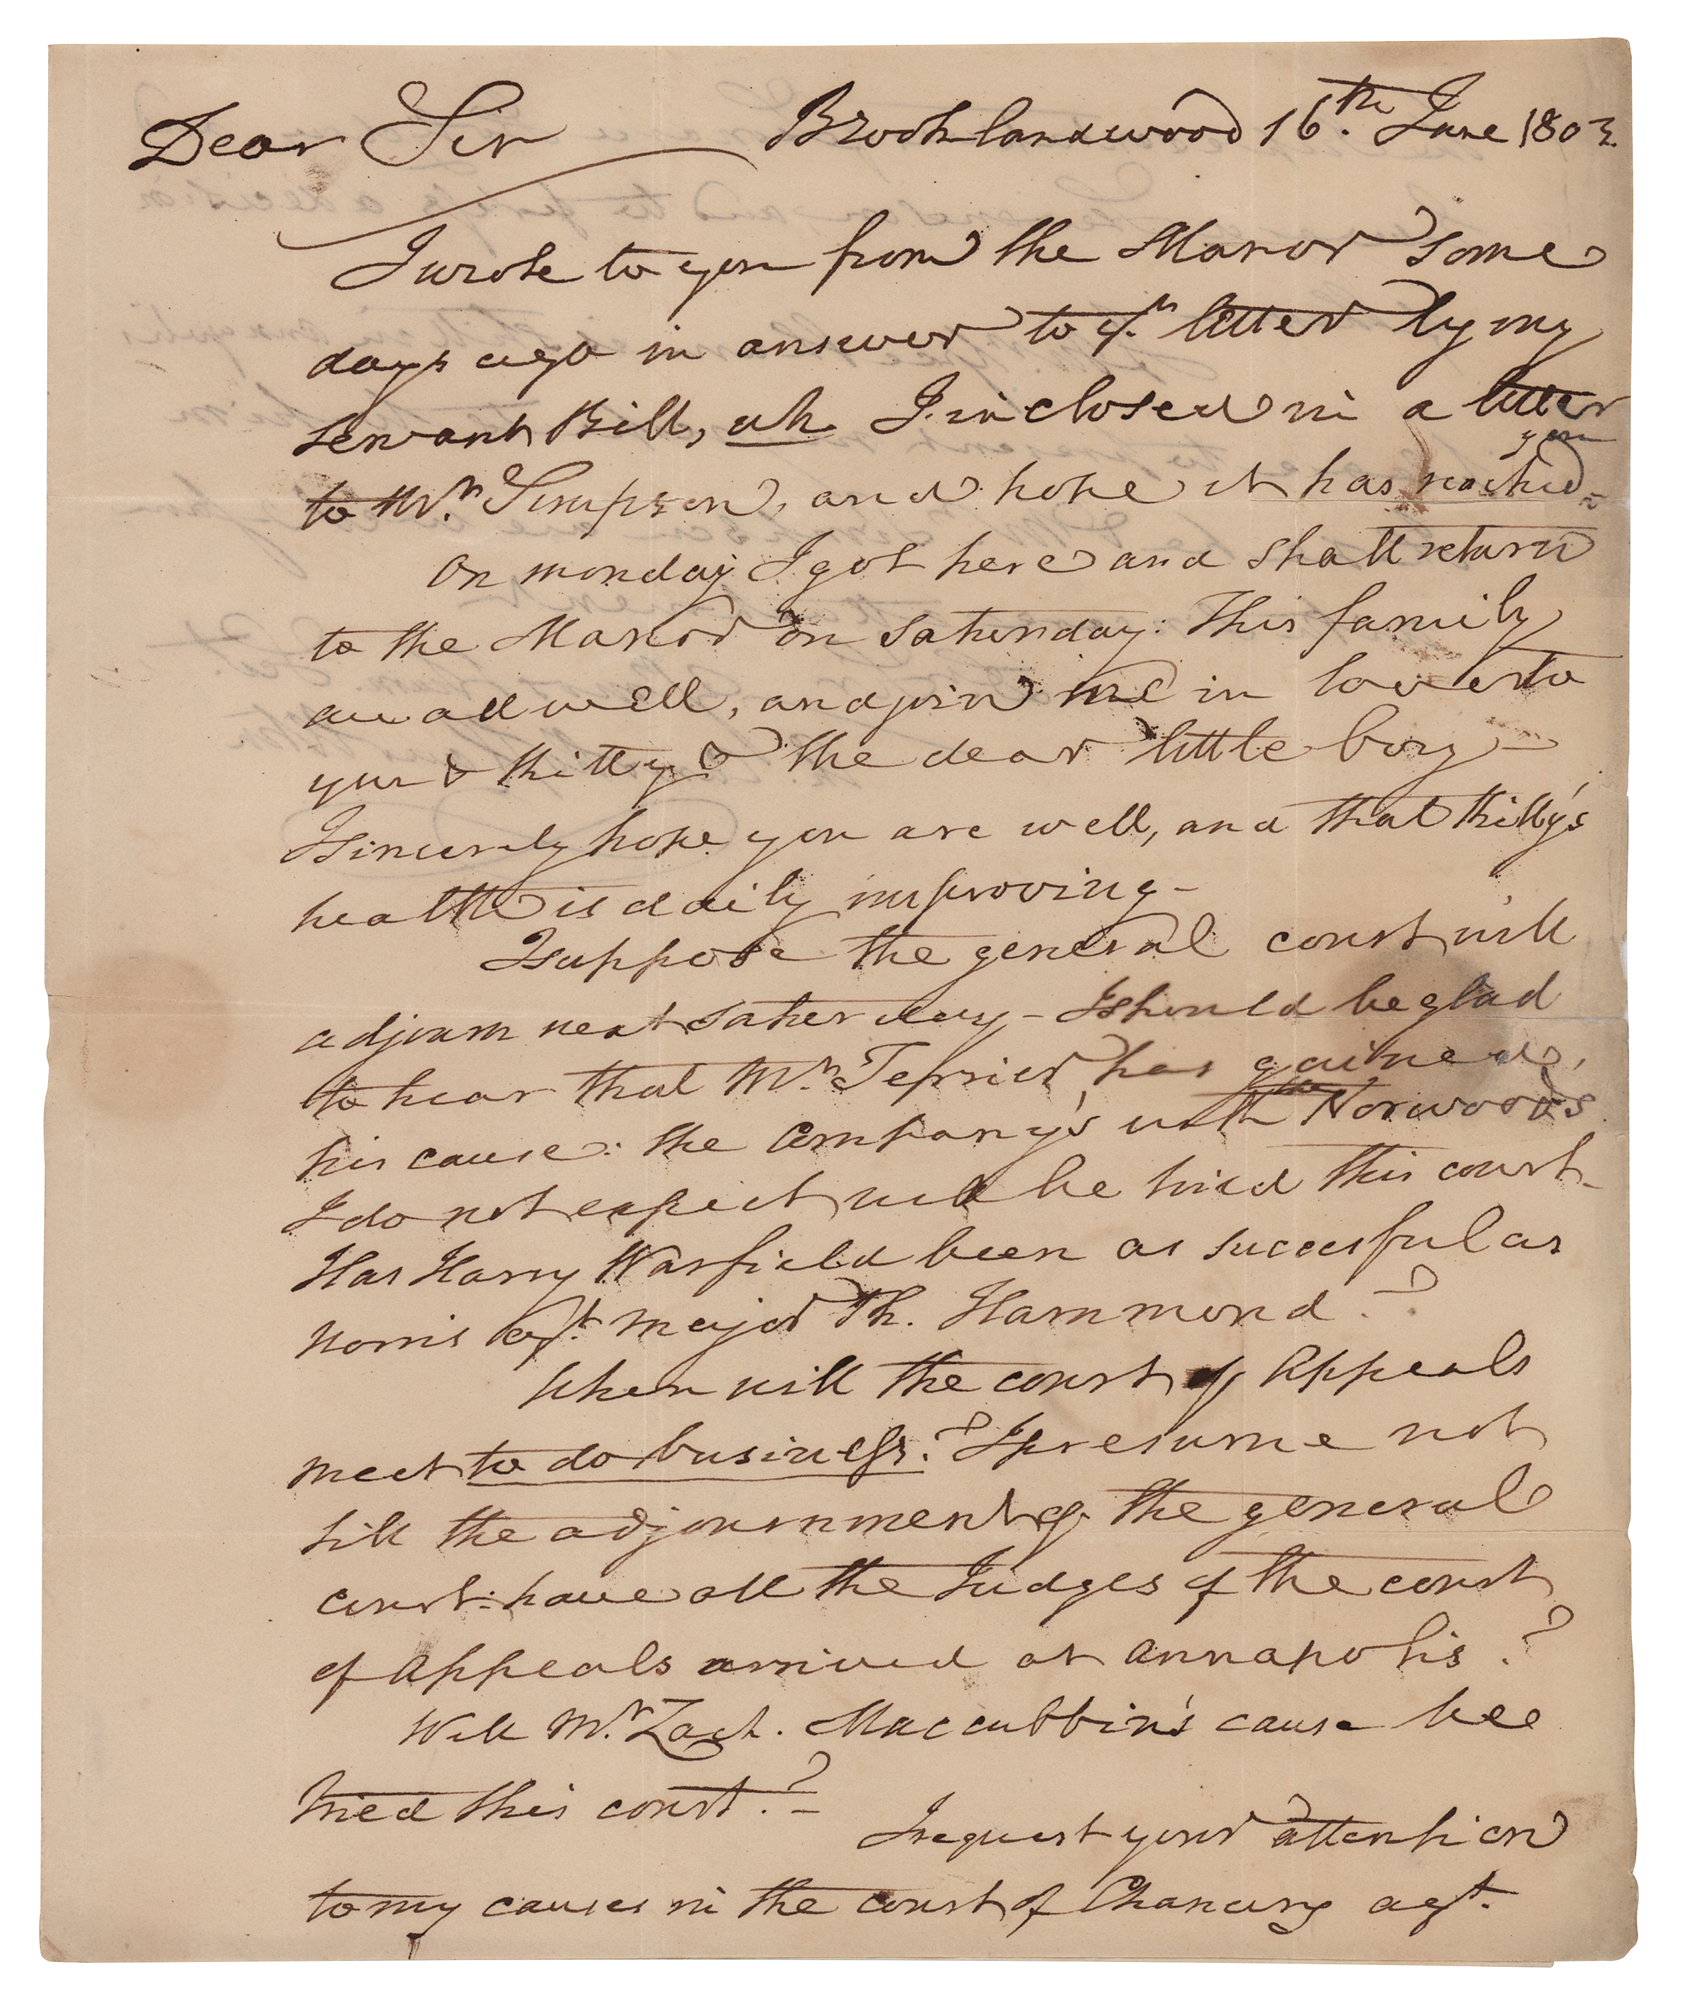 Dear Sir Brooklandwood 16.th June 1803.
I wrote to you from the Manor some
days ago in answer to yr. letter by my
servant Bill, wh. I inclosed in a letter
you
to Mr. Simpson, and hope it has reached
On monday I got here and shall return
to the Manor on saturday: This family
are all well, and join me in love to
you & Kitty & the dear little boy –
I sincerely hope you are well, and that Kitty's
health is daily improving –
I suppose the general court will
adjourn next saturday – I should be glad
to hear that Mr. has gained
his cause: the Company's with the Norwoods
I do not expect will be tried this court –
Has Harry Warfield been as succesful as
Norris agt. major Th. Hammond.?
When will the court of Appeals
meet to do business.? I presume not
till the adjournment of the general
court: have all the Judges of the court
of Appeals arrived at Annapolis.?
Will Mr. Zach. Maccubbin's cause bee
tried this court.? –
I request your attention
to my causes in the court of Chancery agt.